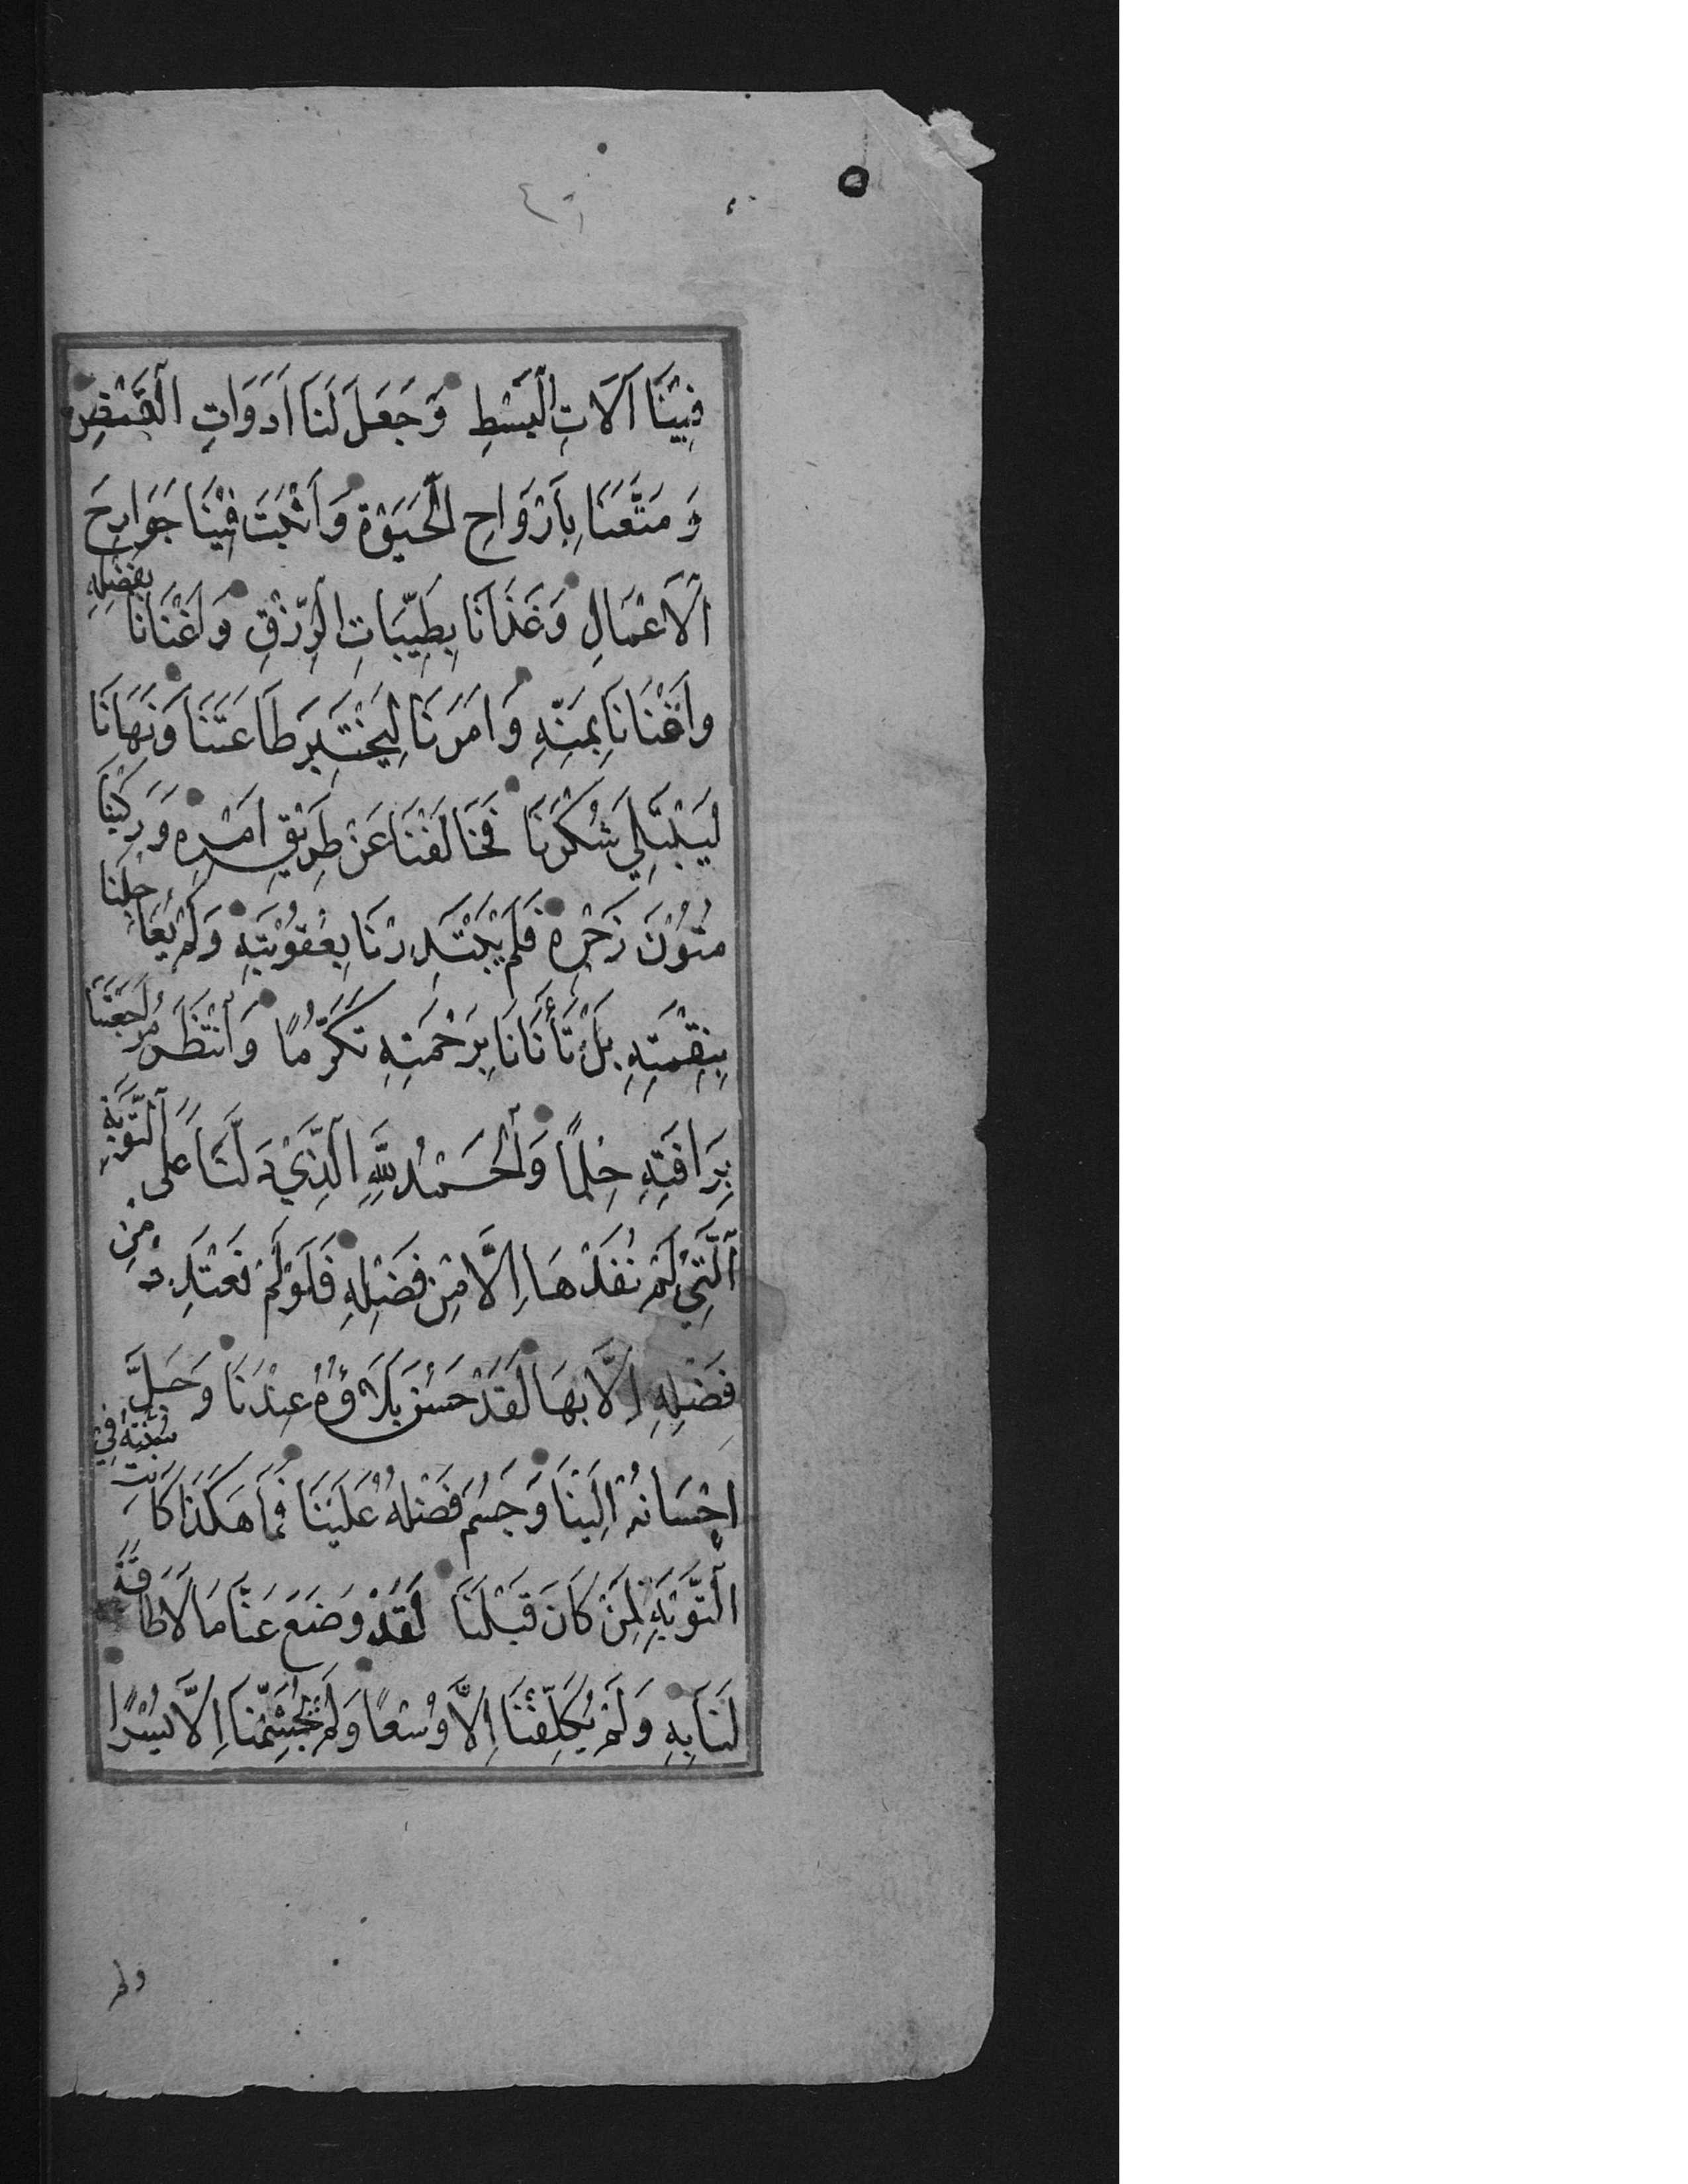 ٥
فِيْنَا آلَاتِ الْبَسْطِ وَجَعَلَ لَنَا اَدَوَاتِ الْقَبْضِ
وَمَتَّعَنَا بِاَرْوَاحِ الْحَيٰوةِ وَاَثْبَتَ فِيْنَا جَوَارِحَ
الْاَعْمَالِ وَغَذَانَا بِطَيِّبَاتِ الرِّزْقِ وَاَغْنَانَا بِفَضْلِهِ
وَاَقْنَانَا بِمَنِّهِ وَاَمَرَنَا لِيَخْتَبِرَ طَاعَتَنَا وَنَهَانَا
لِيَبْتَلِيَ شُكْرَنَا فَخَالَفْنَا عَنْ طَرِيْقِ اَمْرِهِ وَرَكِبْنَا
مُتُوْنَ زَجْرِهِ فَلَمْ يَبْتَدِرْنَا بِعُقُوْبَتِهِ وَلَمْ يُعَاجِلْنَا
بِنِقْمَتِهِ بَلْ تَأَنَّانَا بِرَحْمَتِهِ تَكَرُّمًا وَانْتَظَرَ مُرَاجَعَتَنَا
بِرَافَتِهِ حِلْمًا وَالْحَمْدُ لِلّٰهِ الَّذِيْ دَلَّنَا عَلَى التَّوْبَةِ
الَّتِيْ لَمْ نُفِدْهَا اِلَّا مِنْ فَضْلِهِ فَلَوْ لَمْ نَعْتَدِدْ مِنْ
فَضْلِهِ اِلَّا بِهَا لَقَدْ حَسُنَ بَلَاؤُهُ عِنْدَنَا وَجَلَّ
اِحْسَانُهُ اِلَيْنَا وَجَسُمَ فَضْلُهُ عَلَيْنَا فَمَا هٰكَذَا كَانَتْ سُنَّتُهُ فِي
التَّوْبَةِ لِمَنْ كَانَ قَبْلَنَا لَقَدْ وَضَعَ عَنَّا مَا لَا طَاقَةَ
لَنَا بِهِ وَلَمْ يُكَلِّفْنَا اِلَّا وُسْعًا وَلَمْ يُجَشِّمْنَا اِلَّا يُسْرًا
ولم